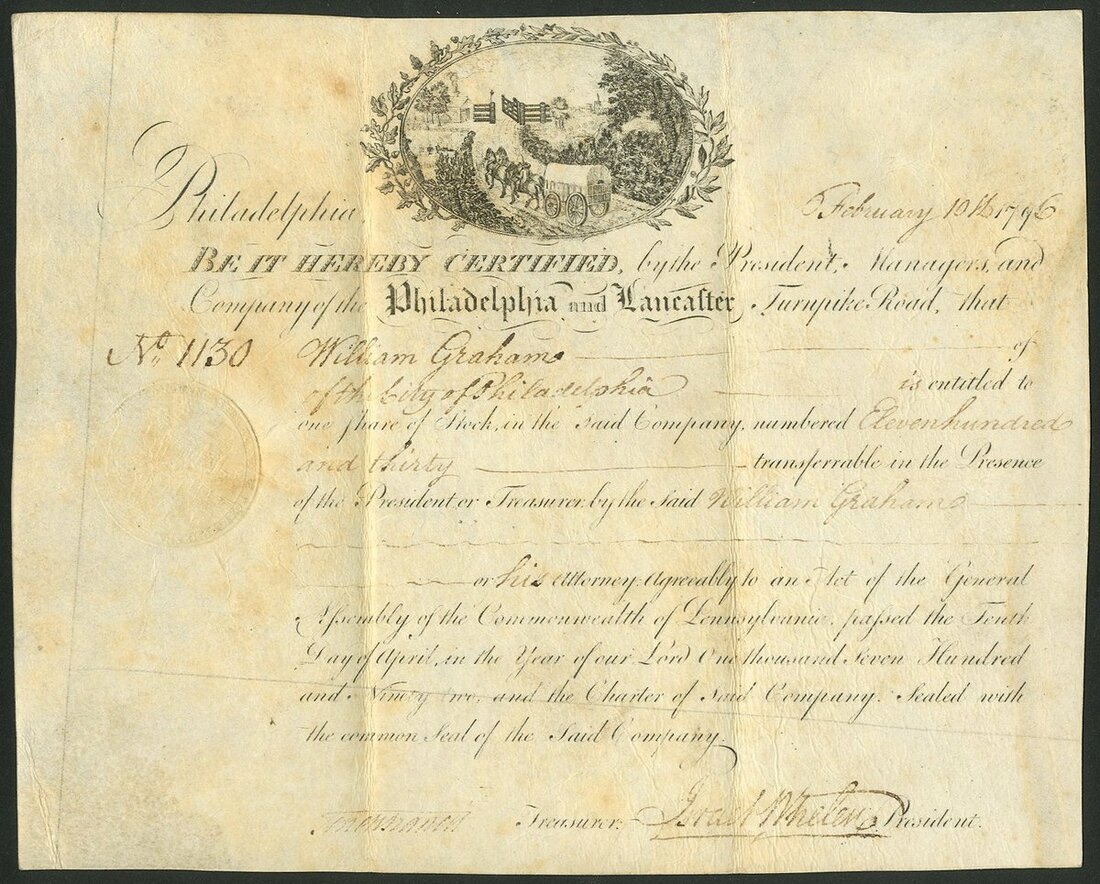 Philadelphia February 10th 1796
BE IT HEREBY CERTIFIED, by the President, Managers, and
Company of the Philadelphia and Lancaster Turnpike Road, that
No. 1130 William Graham of
of the City of Philadelphia is entitled to
one share of Stock, in the said Company, numbered Eleven hundred
and thirty transferrable in the Presence
of the President or Treasurer, by the said William Graham
or his Attorney: Agreeably to an Act of the General
Assembly of the Commonwealth of Pennsylvania, passed the Tenth
Day of April, in the Year of our Lord One thousand Seven Hundred
and Ninety two, and the Charter of said Company. Sealed with
the common Seal of the Said Company.
Treasurer. Israel Whelen President.